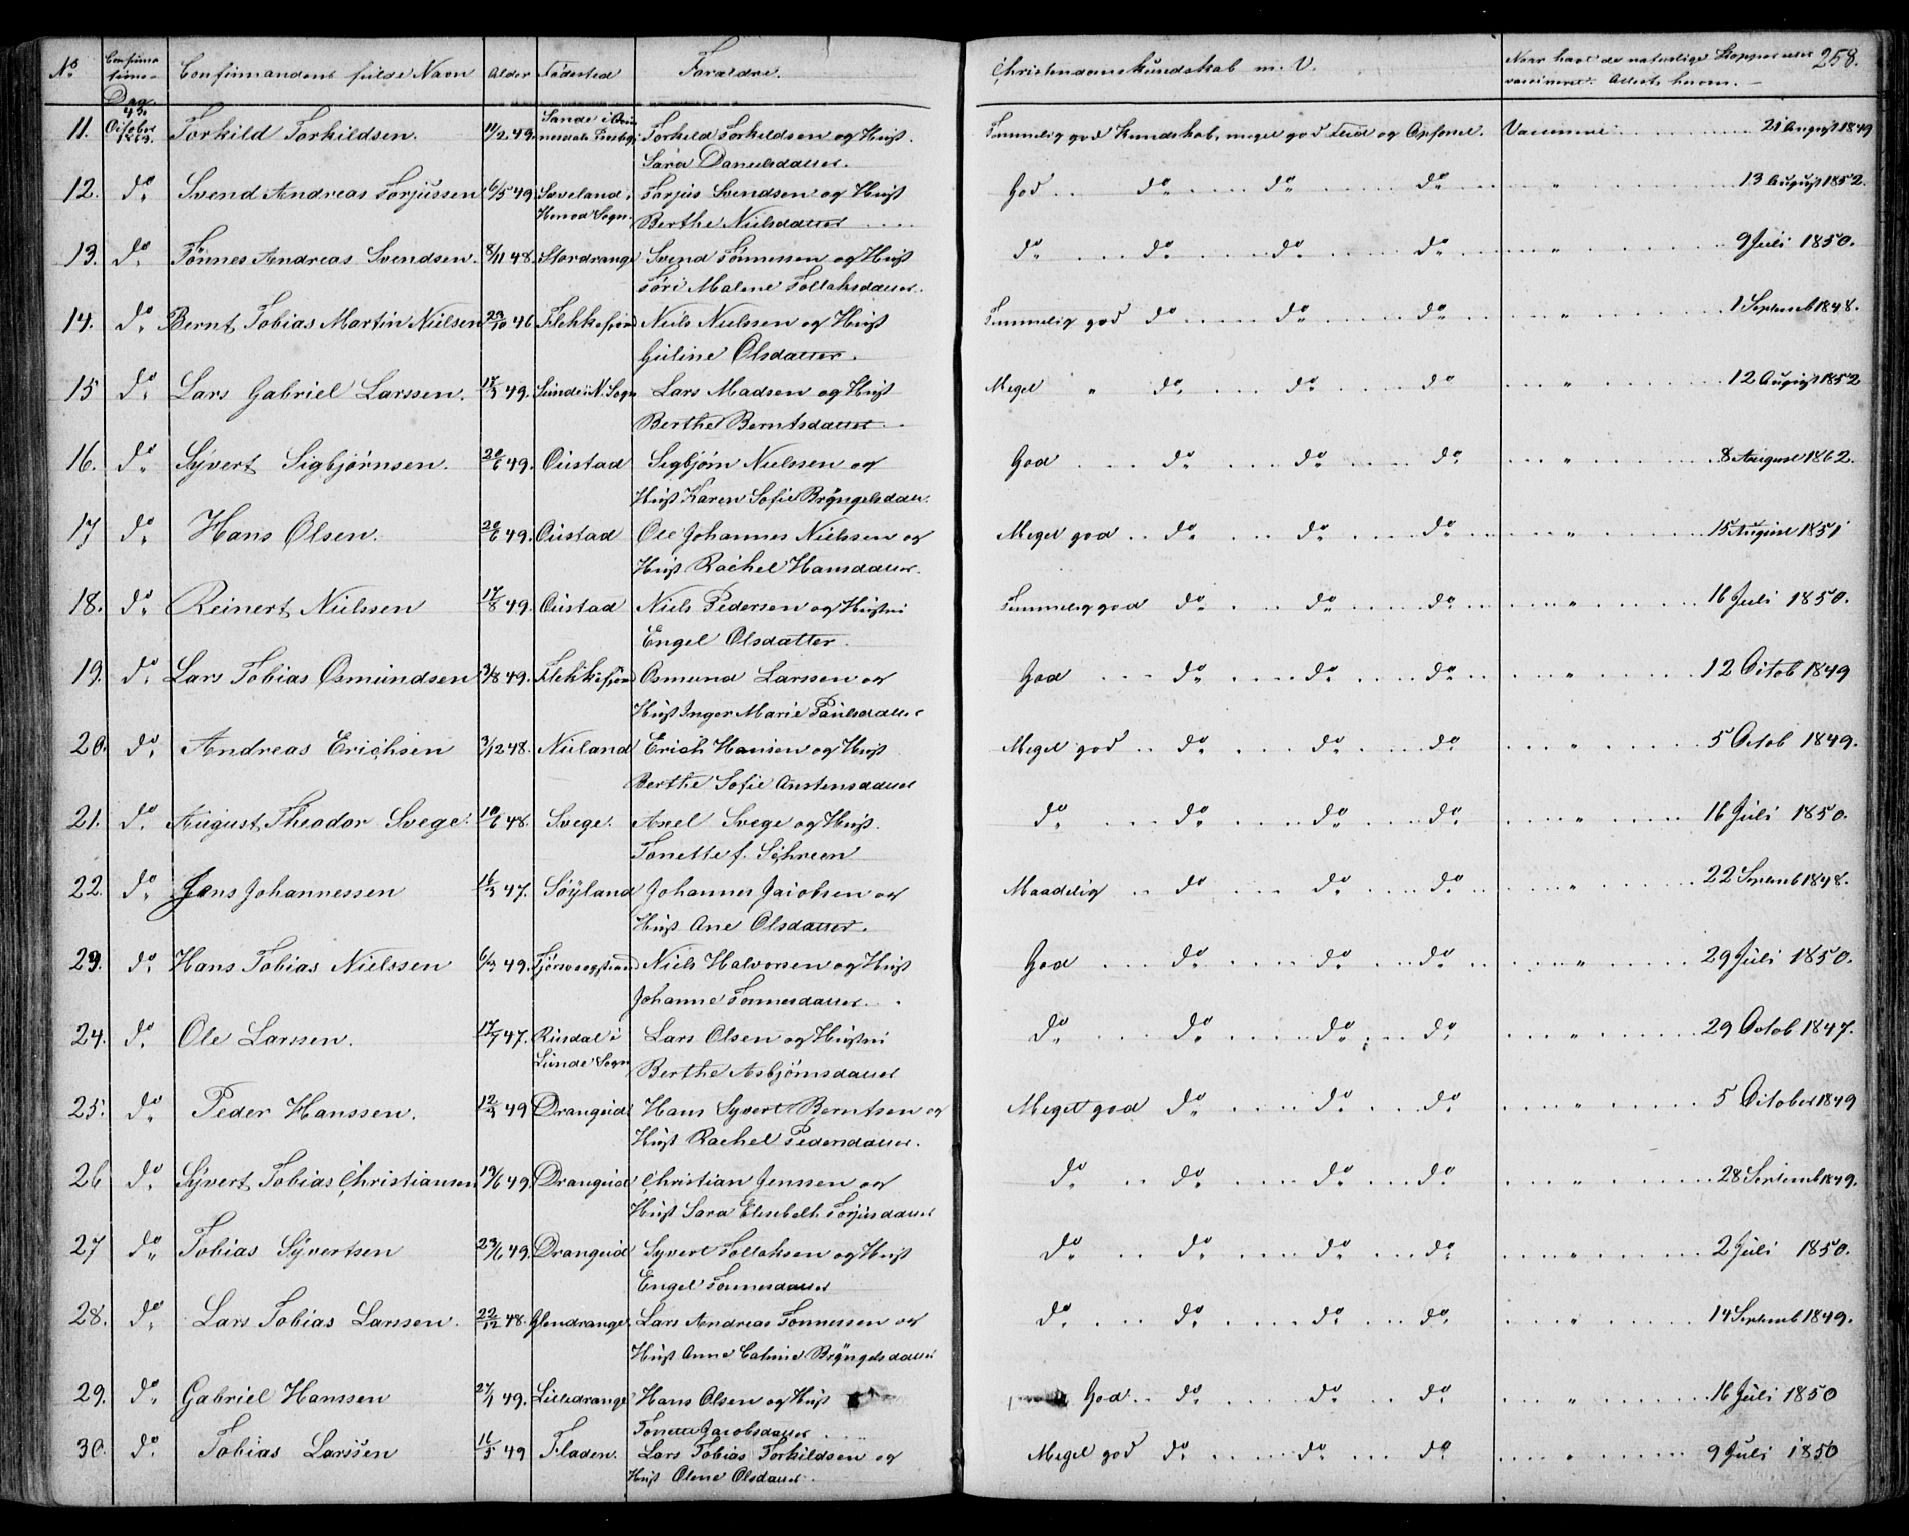 No Confirmationsdag Confirmandens fulde Navn Alder Fødested Forældre. Christendomskundskab m. V. Naar havt de naturlige Kopper eller vaccineret. Attest herom. 258.
11. October 1863. Torkild Torkildsen. 11/2 49. Sande i Torkild Torkildsen og Hust. Temmelig god Kundskab, meget god Flid og Opførsel. Vaccineret 21 August 1849
Sara Danielsdatter.
12. do Svend Andreas Torjussen 6/5 49. Soveland i Torjus Svendsen og Hust God do do do " 13 August 1852.
Sogn. Berthe Nielsdatter
13. do Tönnes Andreas Svendsen. 8/11 48. Stordrange Svend Tönnessen og Hust do do do do " 9 Juli 1850.
Malene Tollaksdatter.
14. do Bernt Tobias Martin Nielsen 46 Flekkefjord Niels Nielssen og Hust Temmelig god do do do " 1 Septemb 1848.
Guline Olsdatter.
15 do Lars Gabriel Larssen. 17/3 49. Sunde i N. Sogn Lars Madsen og Hust Meget " do do do " 12 August 1852
Berthe Berntsdatter.
16. do Syvert Sigbjørnsen. 20/6 49. Oustad Sigbjörn Nielssen og God do do do " 8 August 1862.
Hust Karen Sofie Bryngelsdatter.
17 do Hans Olsen. 20/6 49. Oustad Ole Johannes Nielssen og Meget god do do do " 15 August 1851
Hust Rachel Hansdatter.
18. do Reinert Nielssen 17/8 49. Oustad Niels Pedersen og Hustru Temmelig god do do do " 16 Juli 1850.
Engel Olsdatter.
19. do Lars Tobias Osmundsen 3/8 49. Flekkefjord Osmund Larssen og God do do do " 12 Octob 1849
Hust Inger Marie Paulsdatter
20. do Andreas Erichsen 3/12 48. Nuland Erich Hansen og Hust Meget god do do do " 5 Octob 1849.
Berthe Sofie Oustensdatter
21. do August Theodor Svege. 10/6 48. Svege. Axel Svege og Hust. do do do do " 16 Juli 1850.
Tonette f. Sehreen
22. do Jens Johannessen 16/3 47. Söyland Johannes Jacobsen og Maadelig do do do " 22 Septemb 1848.
Hust Ane Olsdatter.
23. do Hans Tobias Nielssen 6/3 49. Niels Halvorsen og Hust God do do do " 29 Juli 1850.
Johanne Tonnesdatter.
24. do Ole Larssen. 47. Risdal i Lars Olsen og Hustru do do do do " 29 Octob 1847.
Lunde Sogn Berthe Asbjörnsdatter
25. do Peder Hanssen. 12/3 49 Drangeid Hans Syvert Berntsen og Meget god do do do " 5 October 1849
Hust Rachel Pedersdatter.
26 do Syvert Tobias Christiansen 19/6 49. Drangeid Christian Jenssen og do do do do " 28 Septemb 1849.
Hust Sara Elisabeth Torjusdatter
27 do Tobias Syvertsen 23/6 49. Drangeid Syvert Tollaksen og Hust do do do do " 2 Juli 1850.
Engel Tonnesdatter
28. do Lars Tobias Larssen. 22/12 48. Glendrange. Lars Andreas Tonnessen og do do do do " 14 Septemb 1849.
Hust Anne Catrine Bryngelsdatter
29. do Gabriel Hanssen 27/1 49. Lilledrange Hans Olsen og Hust God do do do " 16 Juli 1850
Tonette Jacobsdatter
30. do Tobias Larssen 16/5 49 Fladen. Lars Tobias Torkildsen og Meget god do do do " 9 Juli 1850
Hust Olene Olsdatter.